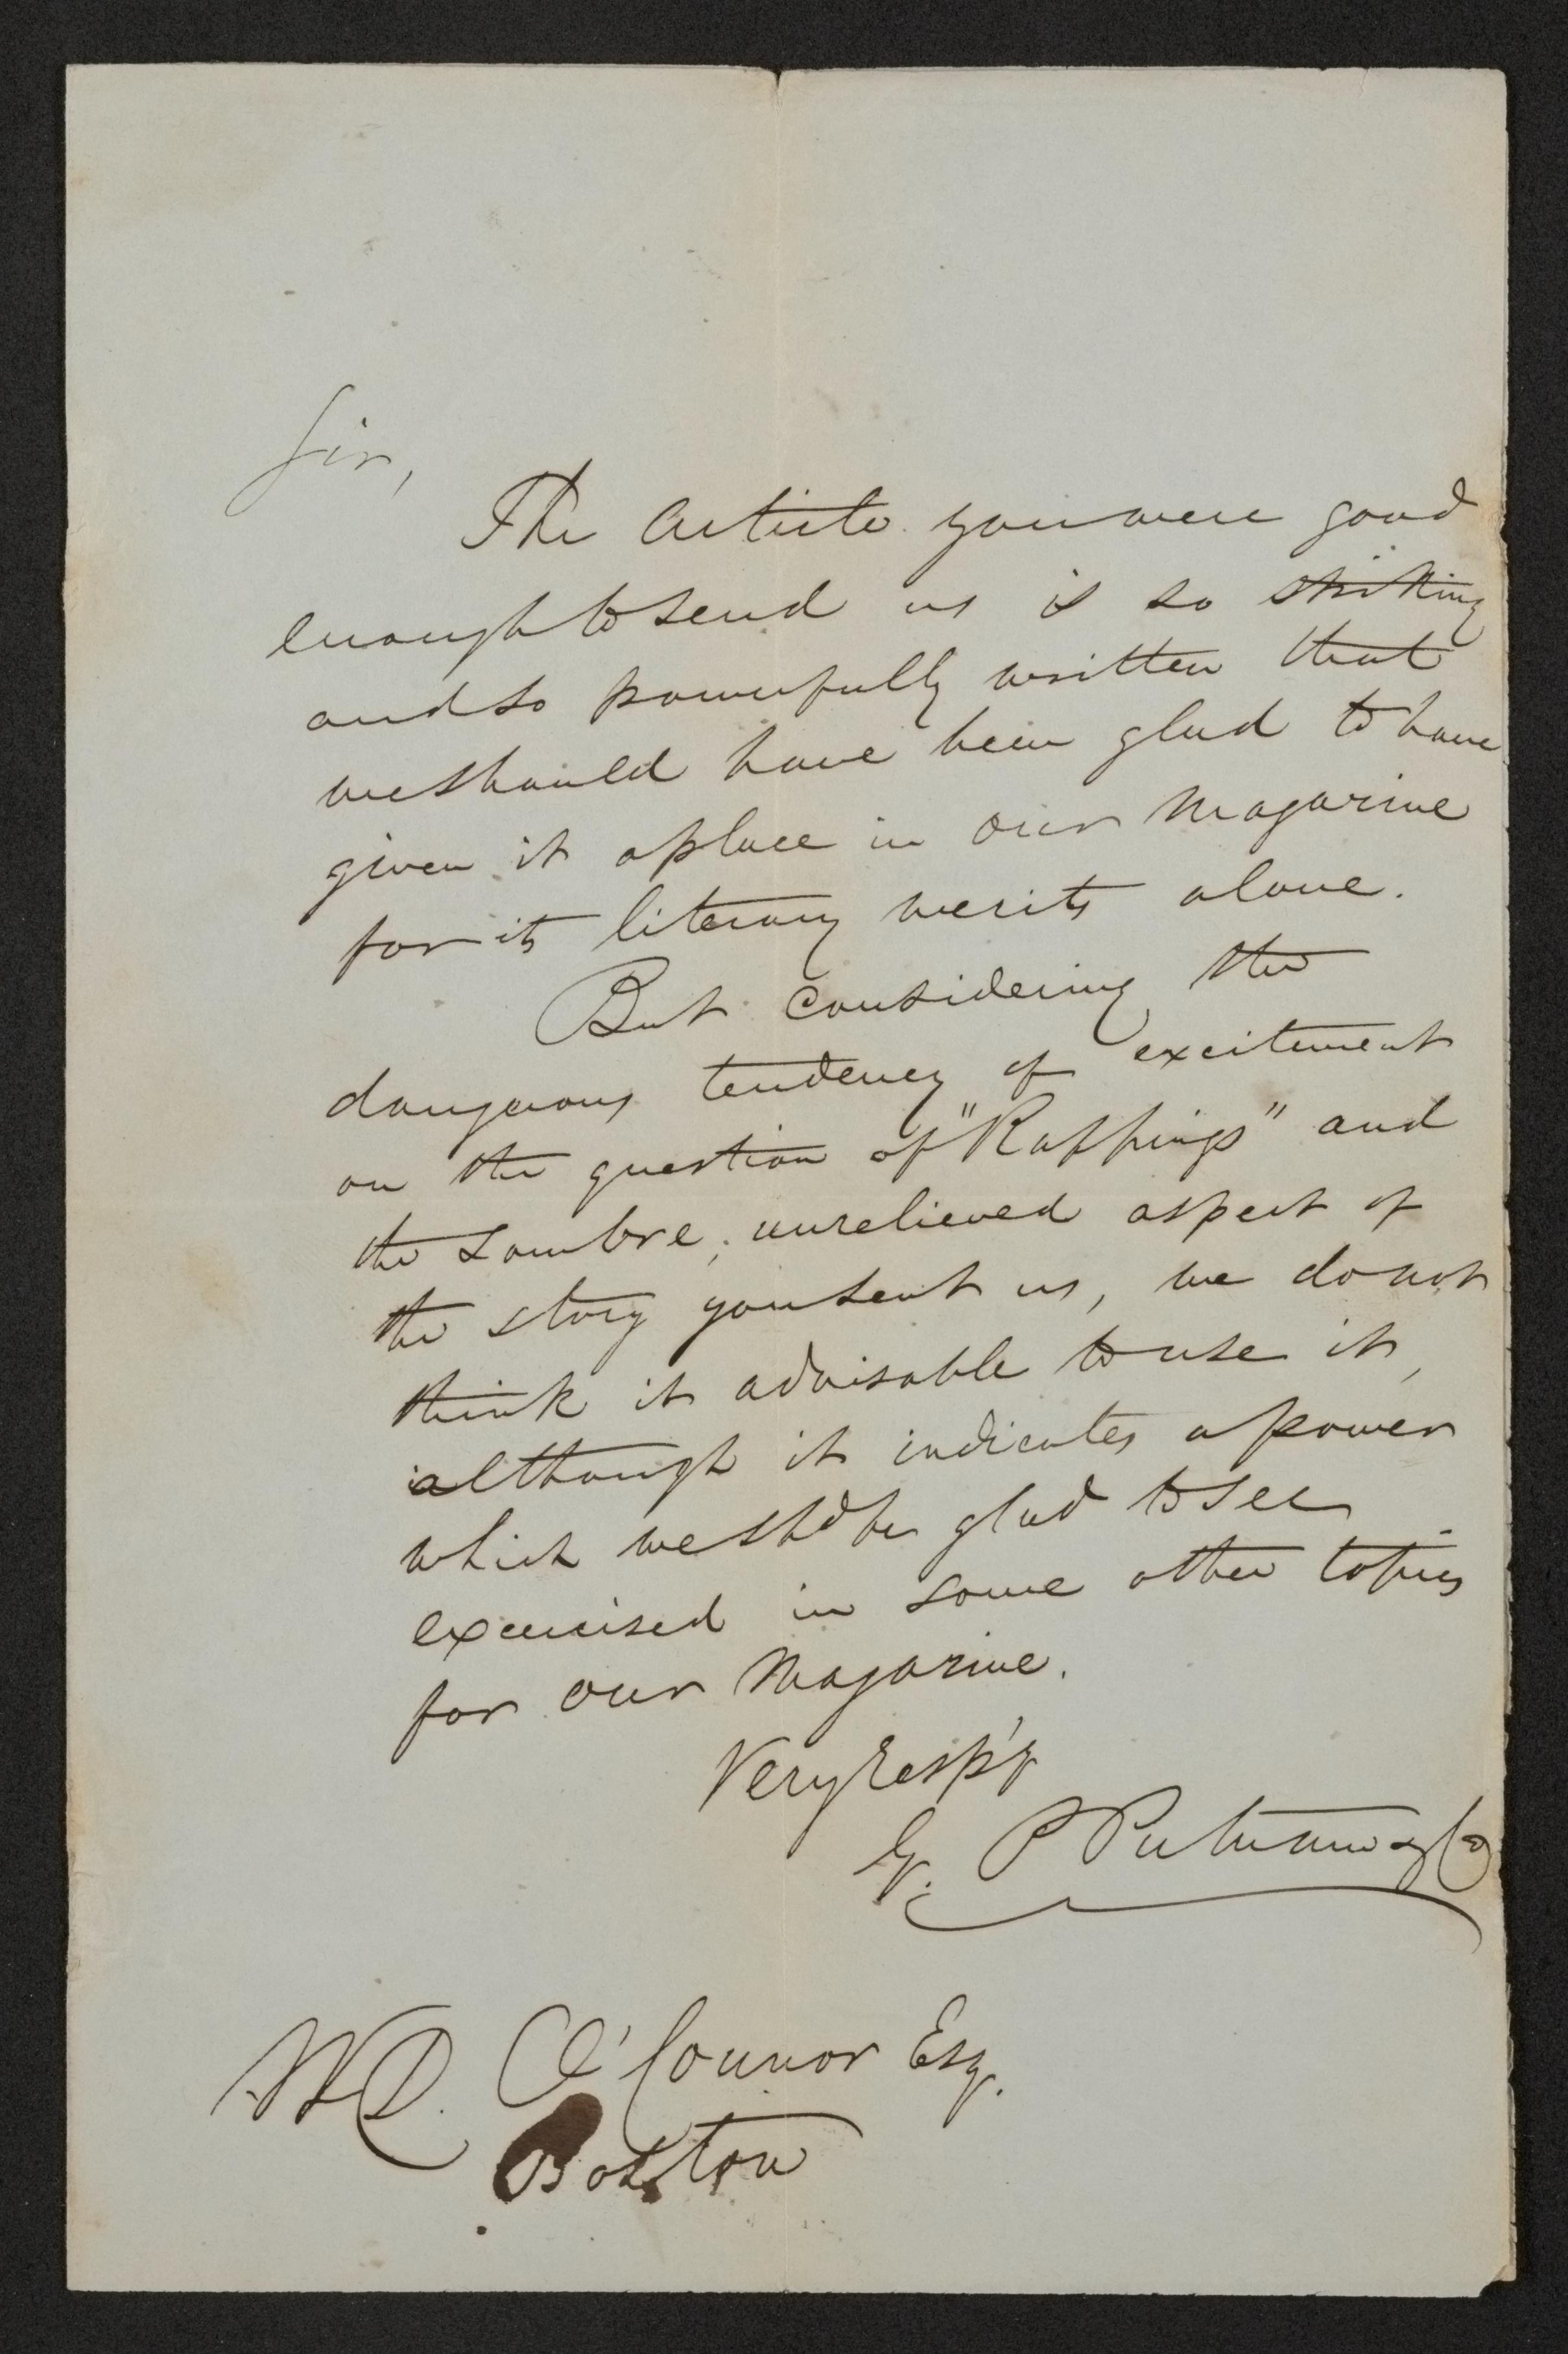 Sir,
The Article you were good
enough to send us is so striking
and so powerfully written that
we should have been glad to have
given it a place in our Magazine
for its literary merits alone.
But considering the
dangerous tendency of excitement
on the question of "Rappings" and
the sombre, unrelieved aspect of
the story you sent us, we do not
think it advisable to use it,
although it indicates a power
which we shd be glad to see
exercised in some other topics
for our Magazine.
Very resp'y
G. P Putnam & Co
W D. O'Connor Esq.
Boston